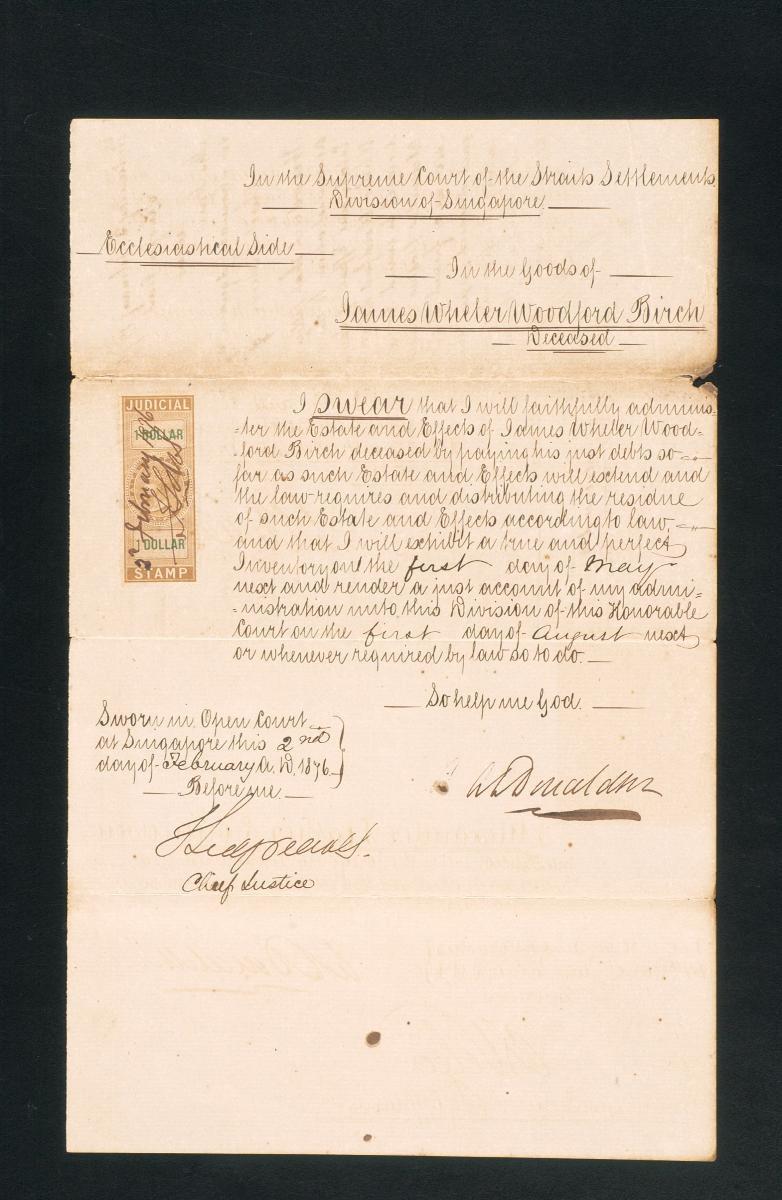 In the Supreme Court of the Straits Settlements
Division of Singapore
Ecclesiastical Side
In the Goods of
James Wheler Woodford Birch
Deceased
JUDICIAL
1 DOLLAR
3rd February 1876
1 DOLLAR
STAMP
I swear that I will faithfully adminis=
=ter the Estate and Effects of James Wheler Wood=
=ford Birch deceased by paying his just debts so
far as such Estate and Effects will extend and
the law requires and distributing the residue
of such Estate and Effects according to law
and that I will exhibit a true and perfect
Inventory on the first day of May
next and render a just account of my admi=
=nistration unto this Division of this Honorable
Court on the first day of August next
or whenever required by law so to do.
So help me God.
Sworn in Open Court
at Singapore this 2nd
day of February A.D. 1876
Before me
Donaldson
Chief Justice